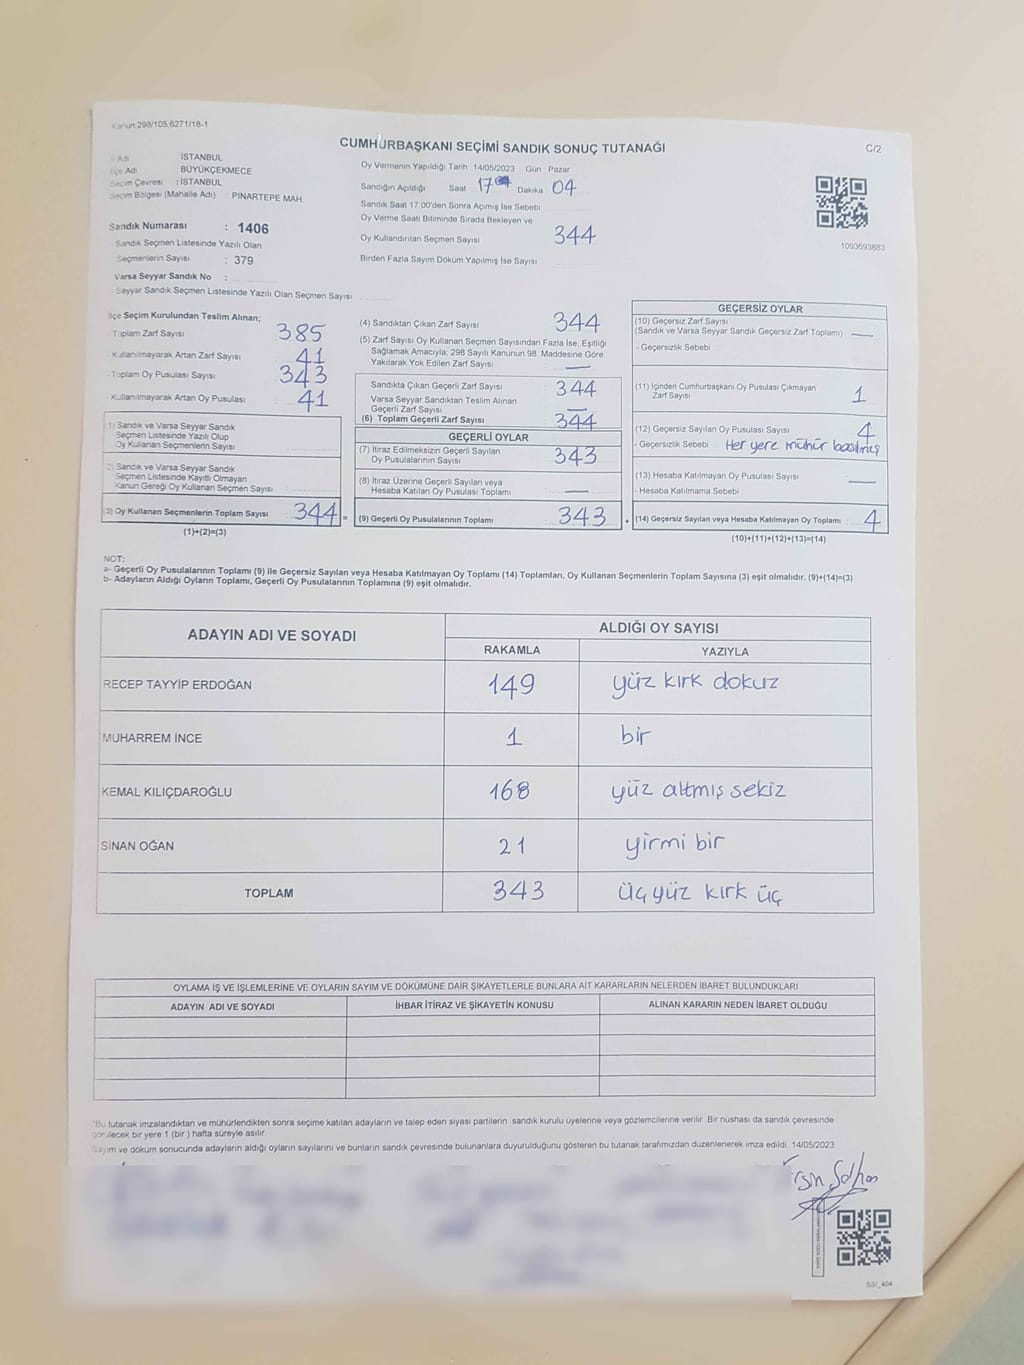 Kanun:298/105;6271/18-1
CUMHURBAŞKANI SEÇİMİ SANDIK SONUÇ TUTANAĞI
C/2
İl Adı : İSTANBUL
İlçe Adı : BÜYÜKÇEKMECE
Seçim Çevresi : İSTANBUL
Seçim Bölgesi (Mahalle Adı) PINARTEPE MAH.
Sandık Numarası : 1406
Sandık Seçmen Listesinde Yazılı Olan
Seçmenlerin Sayısı : 379
Varsa Seyyar Sandık No :
Seyyar Sandık Seçmen Listesinde Yazılı Olan Seçmen Sayısı
Oy Vermenin Yapıldığı Tarih :14/05/2023 Gün : Pazar
Sandığın Açıldığı Saat 17 Dakika 04
Sandık Saat 17:00'den Sonra Açımış İse Sebebi
Oy Verme Saati Bitiminde Sırada Bekleyen ve
Oy Kullandırılan Seçmen Sayısı 344
Birden Fazla Sayım Döküm Yapılmış İse Sayısı
1093693883
İlçe Seçim Kurulundan Teslim Alınan;
Toplam Zarf Sayısı 385
Kullanılmayarak Artan Zarf Sayısı 41
Toplam Oy Pusulası Sayısı 343
Kullanılmayarak Artan Oy Pusulası 41
(1) Sandık ve Varsa Seyyar Sandık
Seçmen Listesinde Yazılı Olup
Oy Kullanan Seçmenlerin Sayısı
(2) Sandık ve Varsa Seyyar Sandık
Seçmen Listesinde Kayıtlı Olmayan
Kanun Gereği Oy Kullanan Seçmen Sayısı
(3) Oy Kullanan Seçmenlerin Toplam Sayısı 344 =
(1)+(2)=(3)
(4) Sandıktan Çıkan Zarf Sayısı 344
(5) Zarf Sayısı Oy Kullanan Seçmen Sayısından Fazla İse, Eşitliği
Sağlamak Amacıyla; 298 Sayılı Kanunun 98. Maddesine Göre
Yakılarak Yok Edilen Zarf Sayısı —
Sandıkta Çıkan Geçerli Zarf Sayısı : 344
Varsa Seyyar Sandıktan Teslim Alınan
Geçerli Zarf Sayısı —
(6) Toplam Geçerli Zarf Sayısı : 344
GEÇERLİ OYLAR
(7) İtiraz Edilmeksizin Geçerli Sayılan
Oy Pusulalarının Sayısı : 343
(8) İtiraz Üzerine Geçerli Sayılan veya
Hesaba Katılan Oy Pusulası Toplamı : —
(9) Geçerli Oy Pusulalarının Toplamı : 343 +
GEÇERSİZ OYLAR
(10) Geçersiz Zarf Sayısı
(Sandık ve Varsa Seyyar Sandık Geçersiz Zarf Toplamı) —
- Geçersizlik Sebebi
(11) İçinden Cumhurbaşkanı Oy Pusulası Çıkmayan
Zarf Sayısı 1
(12) Geçersiz Sayılan Oy Pusulası Sayısı 4
- Geçersizlik Sebebi : Her yere mühür basılmış
(13) Hesaba Katılmayan Oy Pusulası Sayısı —
- Hesaba Katılmama Sebebi
(14) Geçersiz Sayılan veya Hesaba Katılmayan Oy Toplamı : 4
(10)+(11)+(12)+(13)=(14)
NOT:
a- Geçerli Oy Pusulalarının Toplamı (9) ile Geçersiz Sayılan veya Hesaba Katılmayan Oy Toplamı (14) Toplamları, Oy Kullanan Seçmenlerin Toplam Sayısına (3) eşit olmalıdır. (9)+(14)=(3)
b- Adayların Aldığı Oyların Toplamı, Geçerli Oy Pusulalarının Toplamına (9) eşit olmalıdır.
ADAYIN ADI VE SOYADI ALDIĞI OY SAYISI
RAKAMLA YAZIYLA
RECEP TAYYİP ERDOĞAN 149 yüz kırk dokuz
MUHARREM İNCE 1 bir
KEMAL KILIÇDAROĞLU 168 yüz altmış sekiz
SİNAN OĞAN 21 yirmi bir
TOPLAM 343 üçyüz kırk üç
OYLAMA İŞ VE İŞLEMLERİNE VE OYLARIN SAYIM VE DÖKÜMÜNE DAİR ŞİKAYETLERLE BUNLARA AİT KARARLARIN NELERDEN İBARET BULUNDUKLARI
ADAYIN ADI VE SOYADI İHBAR İTİRAZ VE ŞİKAYETİN KONUSU ALINAN KARARIN NEDEN İBARET OLDUĞU
*Bu tutanak imzalandıktan ve mühürlendikten sonra seçime katılan adayların ve talep eden siyasi partilerin sandık kurulu üyelerine veya gözlemcilerine verilir. Bir nüshası da sandık çevresinde
görülecek bir yere 1 (bir ) hafta süreyle asılır.
Sayım ve döküm sonucunda adayların aldığı oyların sayılarını ve bunların sandık çevresinde bulunanlara duyurulduğunu gösteren bu tutanak tarafımızdan düzenlenerek imza edildi. 14/05/2023